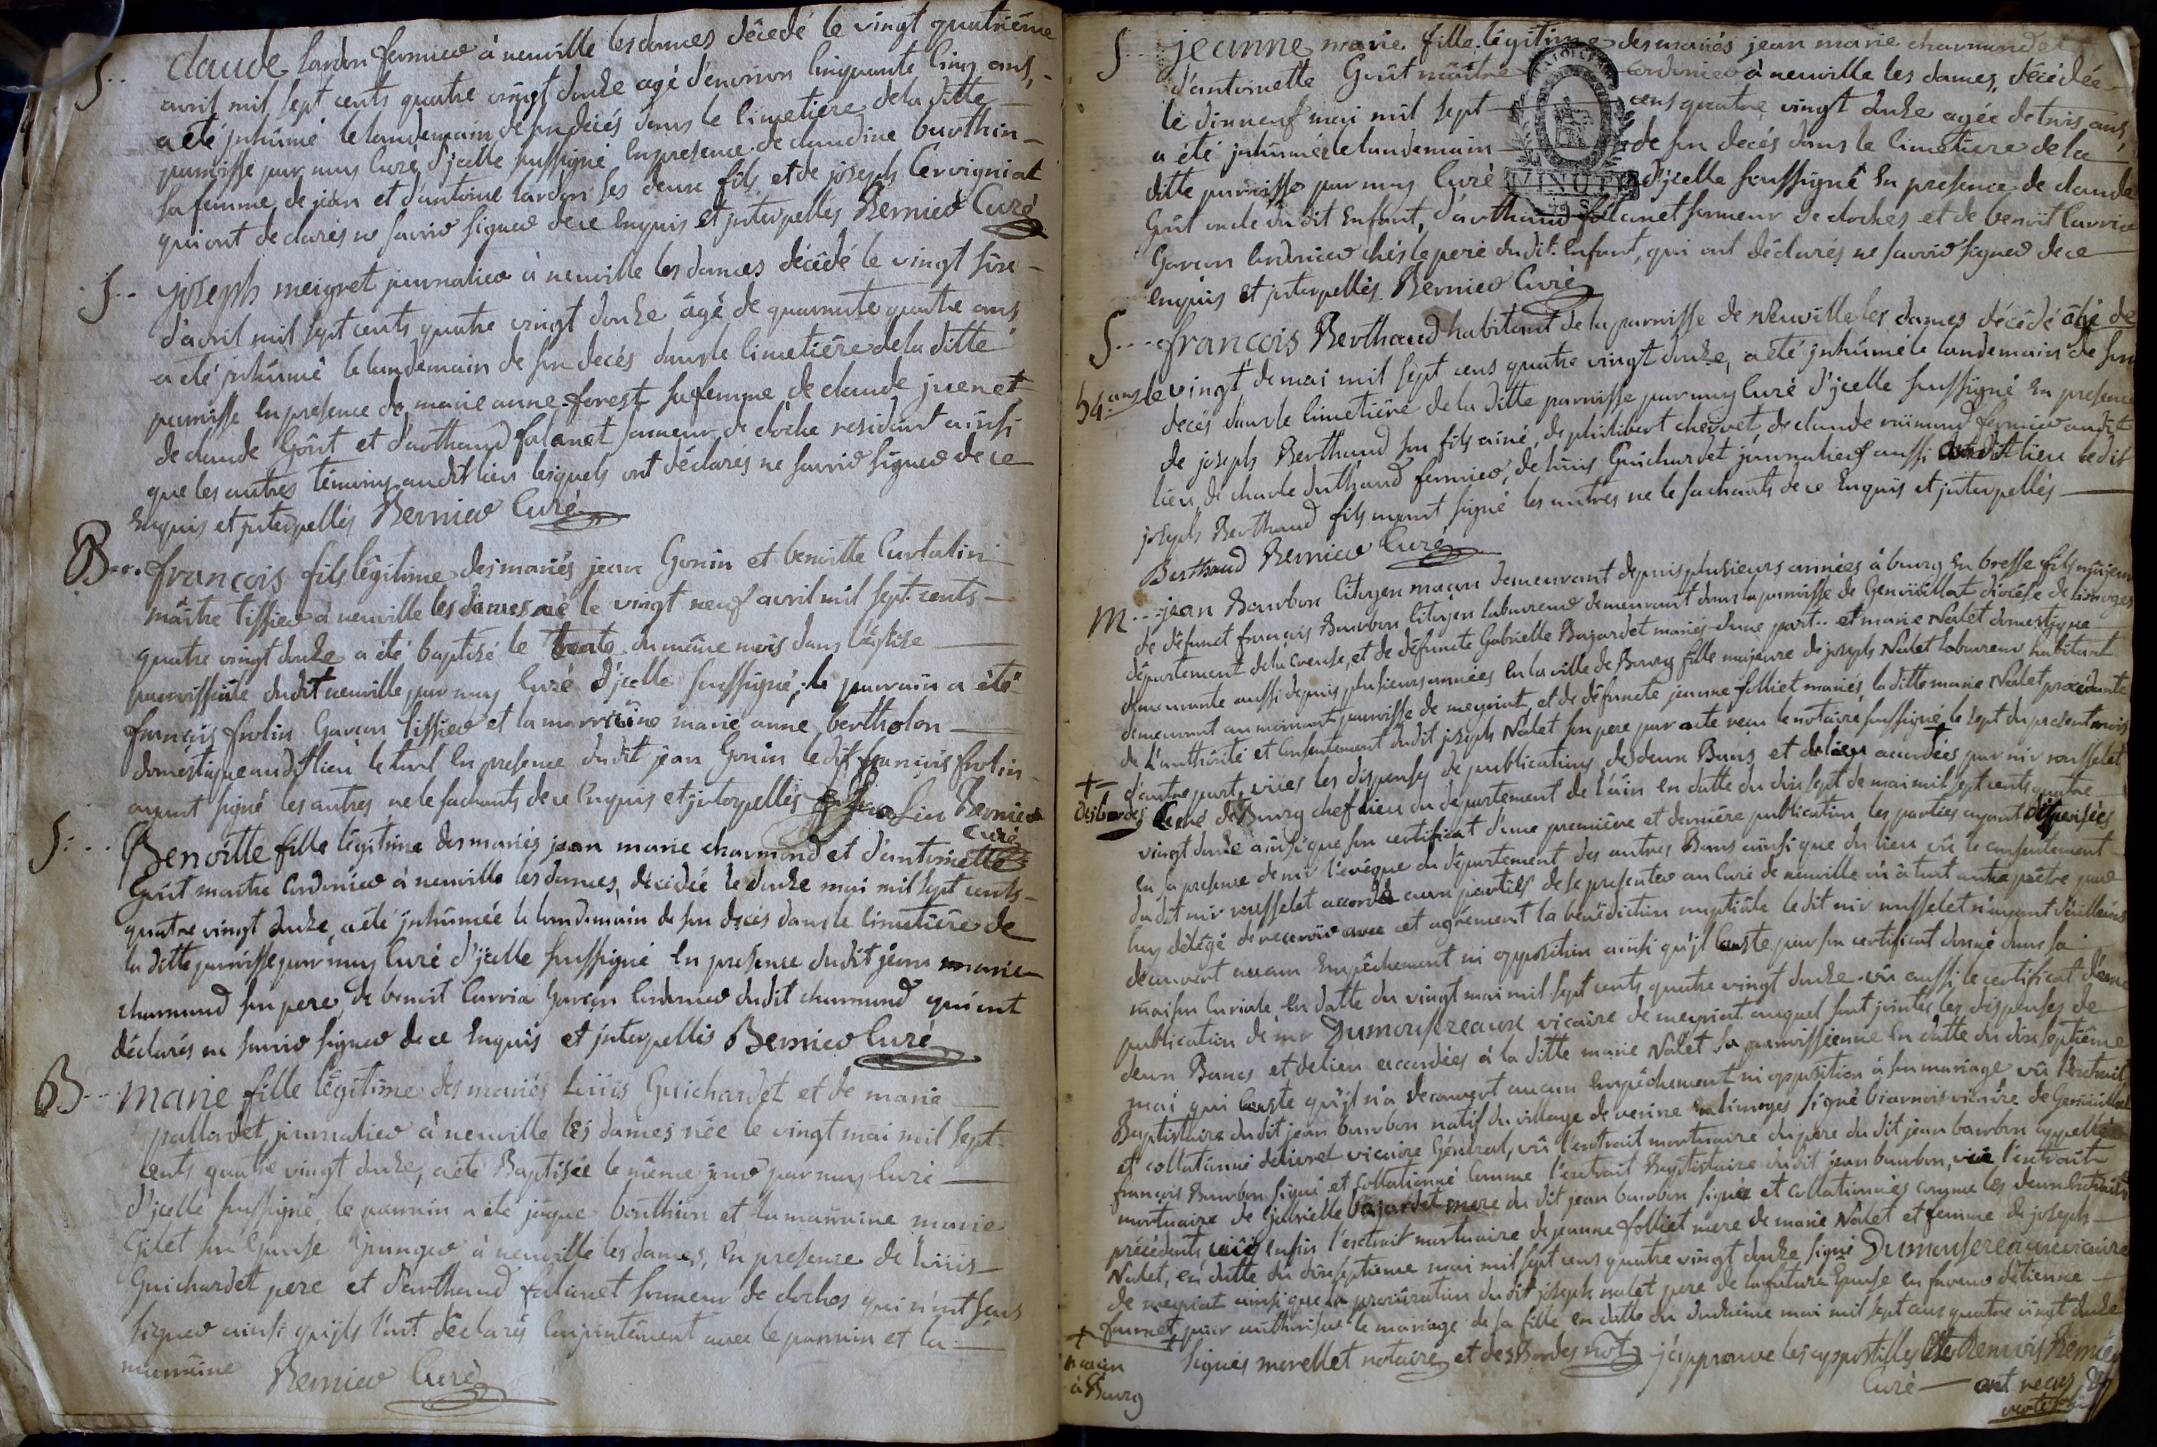 S.. Claude lardon fermier à neuville les dames décédé le vingt quatrième
avril mil sept cents quatre vingt douze agé d'environ cinquante cinq ans,
a été inhumé le landemain de son decés dans le cimetiere de la ditte
paroisse par moy curé d'jcelle soussigné en presence de claudine burthin
sa femme, de jean et d'antoine lardon ses deux fils et de joseph
qui ont declarés ne savoir signer de ce enquis et jnterpellés Bernier Curé
S.. joseph meigret journalier à neuville les dames décédé le vingt six
d'avril mil sept cents quatre vingt douze âgé de quarante quatre ans
a été jnhumé le landemain de son decés dans le cimetiére de la ditte
paroisse en presence de marie anne forest sa femme de claude juenet
de claude Goût et d'arthaud falconet sonneur de cloche residant ainsi
que les autres témoins audit lieu lesquels ont déclarés ne savoir signer de ce
enquis et jnterpellés Bernier Curé
B... françois fils légitime des mariés jean Gonin et benoitte Curtalin
maître tissier à neuville les dames né le vingt neuf avril mil sept cents
quatre vingt douze a été baptisé le trente du même mois dans l'église
paroissiale dudit neuville par moy Curé d'jcelle soussigné; le parrain a été
françois frolin Garçon tissier et la marraine marie anne bertholon
domestique audit lieu le tout en presence dudit jean Gonin ledit françois frolin
ayant signé les autres ne le sachants de ce enquis et jnterpellés f frolin Bernier
Curé
S... Benoitte fille légitime des mariés jean marie charmond et d'antoinette
Goût maitre Cordonier à neuville les dames, décédée le douze mai mil sept cents
quatre vingt douze, a été jnhumée le landemain de son décés dans le cimetiére de
la ditte paroisse par moy Curé d'jcelle soussigné en presence dudit jean marie
charmond son pere, de benoit Curria Garçon Cordonier dudit charmond qui ont
déclarés ne savoir signer de ce enquis et jnterpellés Bernier Curé
B... marie fille légitime des mariés Louis Guichardet et de marie
pallordet journalier à neuville les dames née le vingt mai mil sept
cents quatre vingt douze, a été Baptisée le même jour par moy Curé
d'jcelle soussigné, le parrain a été jâque bouthion et la marraine marie
Gilet son epouse Granger à neuville les dames, en presence de Louis
Guichardet pere et d'arthaud falconet sonneur de cloches qui n'ont seus
signer ainsi qu'jls l'ont déclarés conjointement avec le parrain et la
marraine Bernier Curé
S... jeanne marie fille légitime des mariés jean marie charmond et
d'antoinette Goût maitre Cordonier à neuville les dames, décédée
le dixneuf mai mil sept cens quatre vingt douze agée de trois ans,
a été jnhumée le landemain de son decés dans le cimetiere de la
ditte paroisse par moy Curé d'jcelle soussigné en presence de claude
Goût oncle dudit enfant, d'arthaud falconet sonneur de cloches et de benoit Curria
Garçon Cordonier chés le pere dudit enfant, qui ont déclarés ne savoir signer de ce
enquis et jnterpellés Bernier Curé
S... françois Berthaud habitant de la paroisse de Neuville les dames décédé âgé de
54 ans le vingt de mai mil sept cens quatre vingt douze, a été jnhumé le landemain de son
decés dans le cimetiére de la ditte paroisse par moy Curé d'jcelle soussigné en presence
de joseph Berthaud son fils ainé, de philibert chervet, de claude raimond fermier audit
lieu, de charle duthaud fermier, de Louis Guichardet journalier aussi audit lieu ledit
joseph Berthaud fils ayant signé les autres ne le sachants de ce enquis et jnterpellés
Berthaud Bernier Curé
M... jean Bourbon Citoyen maçon demeurant depuis plusieurs années à bourg en bresse fils majeur
de défunct françois Bourbon Citoyen laboureur demeurant dans la paroisse de Genouillat diocése de limoges
département de la creuse, et de défuncte Gabrielle Bajardet mariés d'une part.. et marie Nalet domestique
demeurante aussi depuis plusieurs années en la ville de Bourg fille majeure de joseph Nalet laboureur habitant
demeurant au moment paroisse de meyriat, et de défuncte jeanne folliet mariés la ditte marie Nalet procedante
de l'authorité et consentement dudit joseph Nalet son pere par acte reçu le notaire soussigné le sept du present mois
+ d'autre part, vües les dispenses de publications des deux Bans et de lieu accordées par mr rousselet
desbordes Curé de Bourg chef lieu du département de l'ain en datte du dix sept de mai mil sept cents quatre
vingt douze ainsi que son certificat d'une premiére et derniére publication les parties ayant dispensées
en la presence de mr l'évêque du département des autres Bans ainsi que du lieu vû le consentement
dudit mr rousselet accordé aux parties de se presenter au Curé de neuville ou à tout autre prêtre par
luy délégé de recevoir avec cet agrément la bénédiction nuptiale ledit mr rousselet n'ayant d'ailleurs
découvert aucun empêchement ni opposition ainsi qu'jl conste par son certificat donné dans sa
maison Curiale en datte du vingt mai mil sept cents quatre vingt douze vû aussi le certificat d'une
publication de mr Dumousereaux vicaire de meyriat auquel sont jointes les dispenses de
deux Bancs et de lieu accordées à la ditte marie Nalet sa paroissienne en datte du dix septiême
mai qui conste qu'jl n'a decouvert aucun empêchement ni opposition à son mariage vû l'extrait
Baptistaire dudit jean bourbon natif du village de verine en limoges signé biarnois vicaire de Genouillat
et collationné vicaire Général, vû l'extrait mortuaire du pere dudit jean bourbon appellé
françois Bourbon signé et collationné comme l'extrait Baptistaire dudit jean bourbon, vüe l'extrait
mortuaire de Gabrielle bajardet mere du dit jean bourbon signée et collationnés comme les deux extraits
précédents, vüe enfin l'extrait mortuaire de jeanne folliet mere de marie Nalet et femme de joseph
Nalet, en datte du dixseptieme mai mil sept cens quatre vingt douze signé Dumousereaux vicaire
de meyriat ainsi que la procuration dudit joseph nalet pere de la future epouse en faveur d'étienne
+ fournet pour authoriser le mariage de sa fille en datte du douzième mai mil sept cens quatre vingt douze
maçon à Bourg
signés morellet notaire et des Bordes not j'approuve les appostilles Bernier
Curé ont reçus